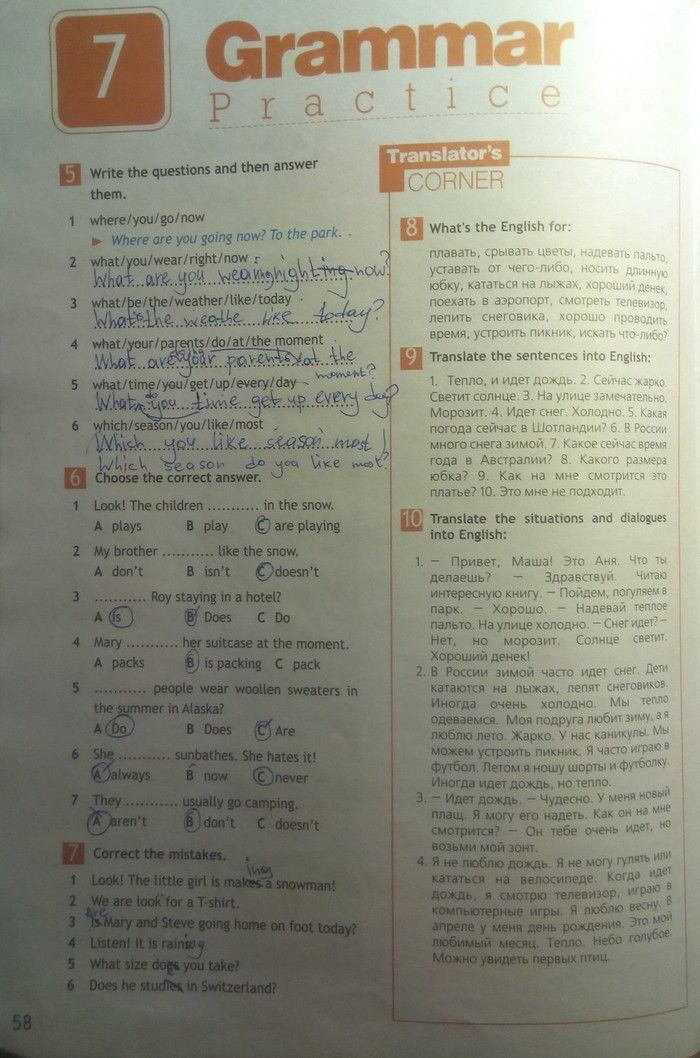 7
Grammar
Practice
5 Write the questions and then answer
them.
1 where/you/go/now
► Where are you going now? To the park.
2 what/you/wear/right/now
What are you wearing right now?
3 what/be/the/weather/like/today
What's the weathe like today?
4 what/your/parents/do/at/the moment
What are your parents at the
moment?
5 what/time/you/get/up/every/day
What you time get up every day?
6 which/season/you/like/most
Which you like season most
Which season do you like most?
6 Choose the correct answer.
1 Look! The children ........... in the snow.
A plays B play C are playing
2 My brother ........... like the snow.
A don't B isn't C doesn't
3 ........... Roy staying in a hotel?
A Is B Does C Do
4 Mary ........... her suitcase at the moment.
A packs B is packing C pack
5 ........... people wear woollen sweaters in
the summer in Alaska?
A Do B Does C Are
6 She ........... sunbathes. She hates it!
A always B now C never
7 They ........... usually go camping.
A aren't B don't C doesn't
7 Correct the mistakes.
ing
1 Look! The little girl is makes a snowman!
2 We are look for a T-shirt.
Are
3 Is Mary and Steve going home on foot today?
4 Listen! It is raining
5 What size does you take?
6 Does he studies in Switzerland?
58
Translator's
CORNER
8 What's the English for:
плавать, срывать цветы, надевать пальто,
уставать от чего-либо, носить длинную
юбку, кататься на лыжах, хороший денек,
поехать в аэропорт, смотреть телевизор,
лепить снеговика, хорошо проводить
время, устроить пикник, искать что-либо?
9 Translate the sentences into English:
1. Тепло, и идет дождь. 2. Сейчас жарко.
Светит солнце. 3. На улице замечательно.
Морозит. 4. Идет снег. Холодно. 5. Какая
погода сейчас в Шотландии? 6. В России
много снега зимой. 7. Какое сейчас время
года в Австралии? 8. Какого размера
юбка? 9. Как на мне смотрится это
платье? 10. Это мне не подходит.
10 Translate the situations and dialogues
into English:
1. – Привет, Маша! Это Аня. Что ты
делаешь? – Здравствуй. Читаю
интересную книгу. – Пойдем, погуляем в
парк. – Хорошо. – Надевай теплое
пальто. На улице холодно. – Снег идет? –
Нет, но морозит. Солнце светит.
Хороший денек!
2. В России зимой часто идет снег. Дети
катаются на лыжах, лепят снеговиков.
Иногда очень холодно. Мы тепло
одеваемся. Моя подруга любит зиму, а я
люблю лето. Жарко. У нас каникулы. Мы
можем устроить пикник. Я часто играю в
футбол. Летом я ношу шорты и футболку.
Иногда идет дождь, но тепло.
3. – Идет дождь. – Чудесно. У меня новый
плащ. Я могу его надеть. Как он на мне
смотрится? – Он тебе очень идет, но
возьми мой зонт.
4. Я не люблю дождь. Я не могу гулять или
кататься на велосипеде. Когда идет
дождь, я смотрю телевизор, играю в
компьютерные игры. Я люблю весну. В
апреле у меня день рождения. Это мой
любимый месяц. Тепло. Небо голубое.
Можно увидеть первых птиц.